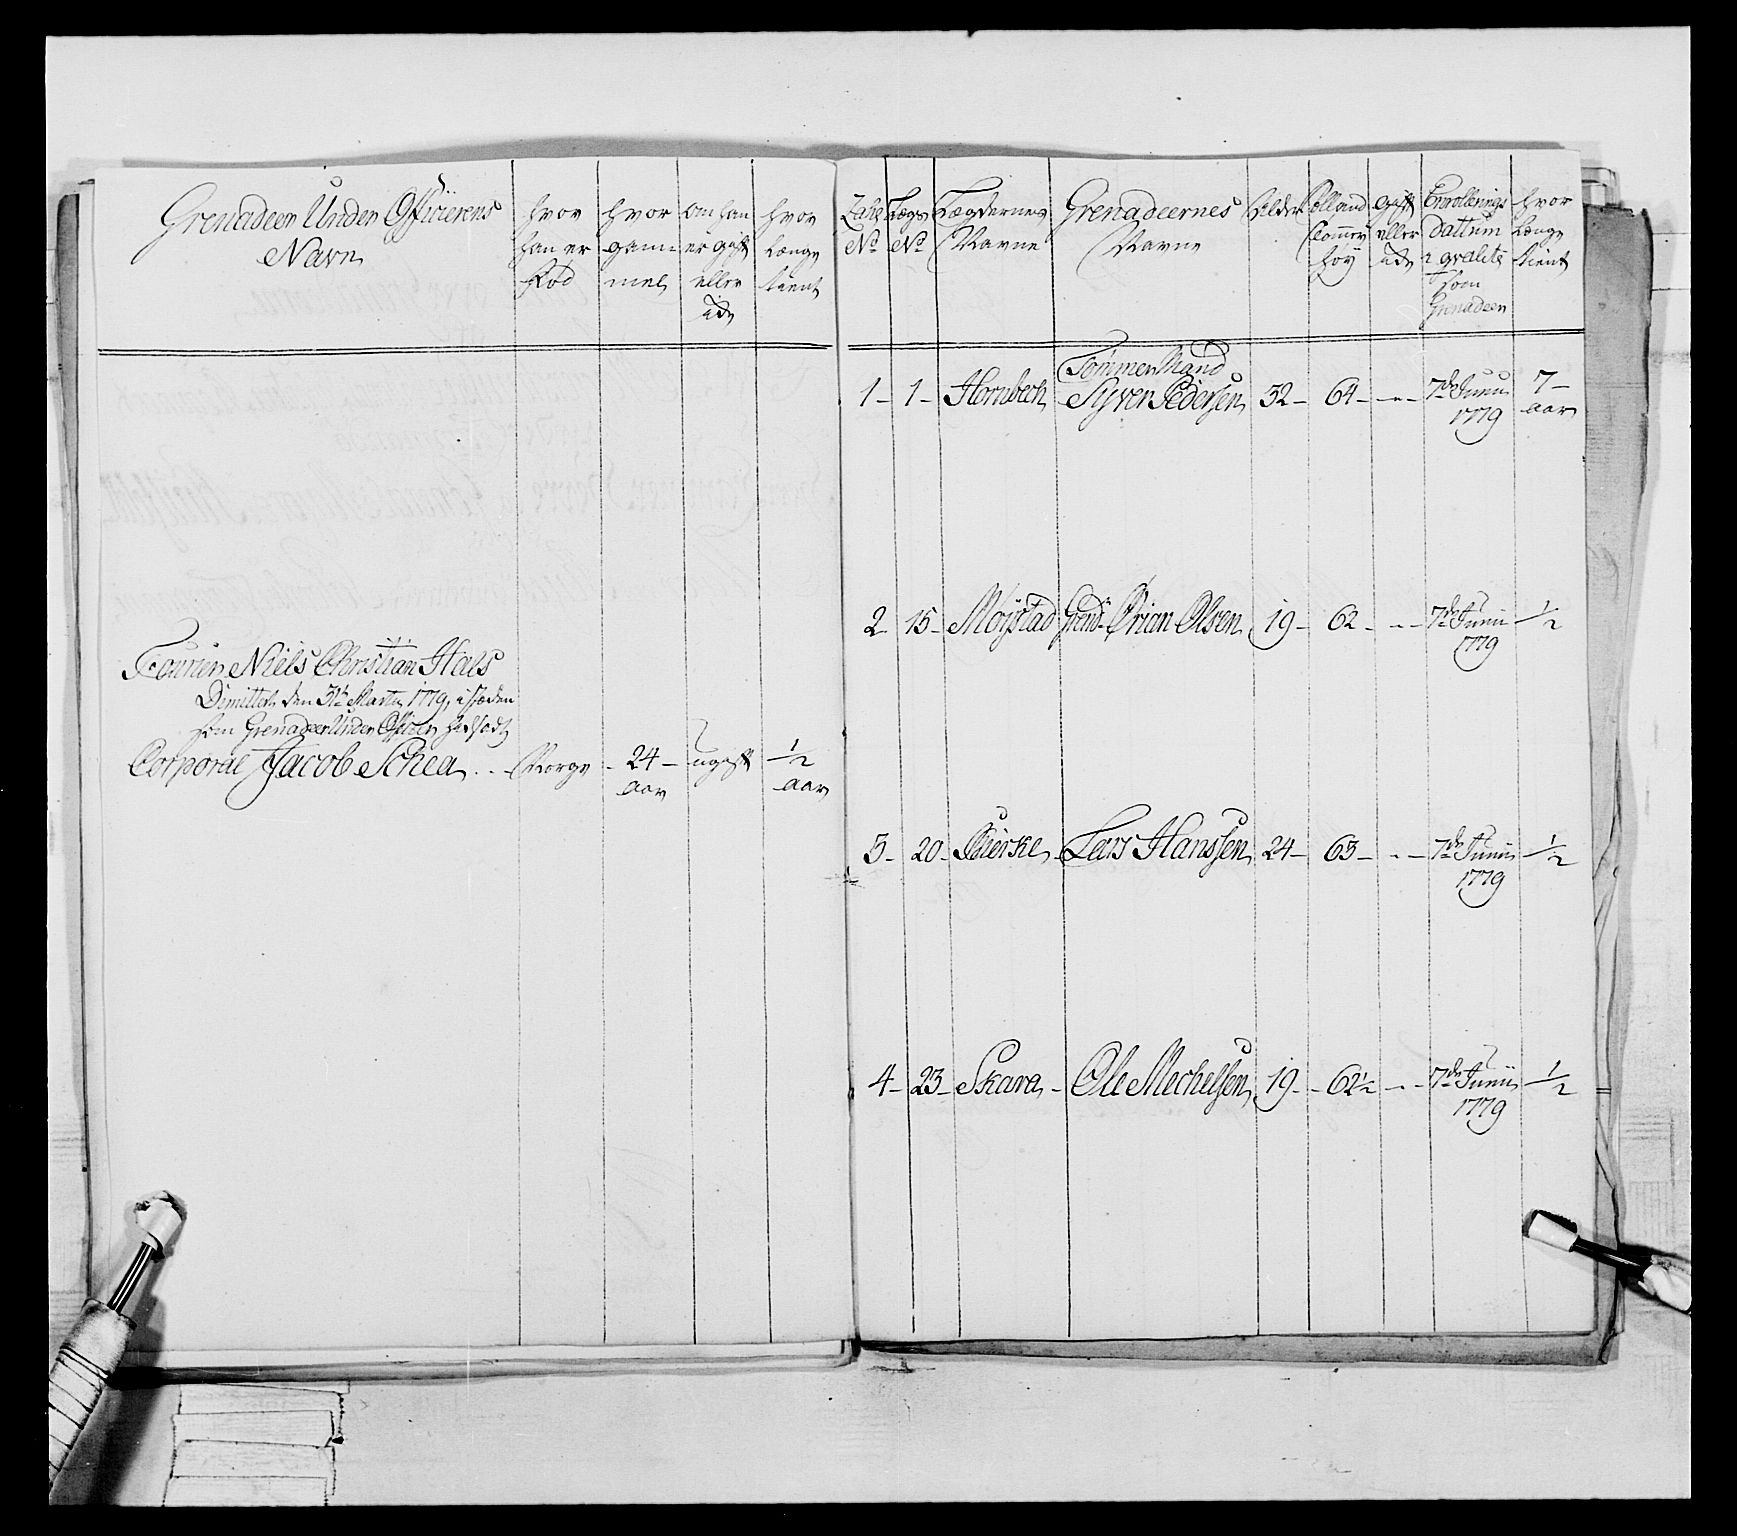 Grenadeer Under Officierens
Navn
hvor
han er
Fød
hvor
gam=
mel
om han
er gift
eller
ide
hvor
Længe
tient
Fourier Niels Christian Hals
Dimittert den 31te Martij 1779, i stæden
som Grenadeer Under Officer hidsadt
Corporal Jacob Schea . . Norge - 24 - ugift 1/2
aar aar
No
Lægs
No
Lægdernes
Navne
Grenadeernes
Navne
Alder
høy
gift
eller
ide
Enrollerings
Dattum
i qvalite
som
Grenadeer
hvor
Længe
tient
Tømmer Mand
1 - 1 - Hornbech Syver Pedersen 32 - 64 - - - 7de Junii 7 -
1779 aar
2 - 15 - Moystad Grend. Ørian Olsen 19 - 62 - - - 7de Junii 1/2
1779
3 - 20 - Bierke Lars Hanssen 24 - 63 - - - 7de Junii 1/2
1779
4 - 23 - Skara - Ole Mechelsen 19 - 62 1/2 - - 7de Junii 1/2
1779